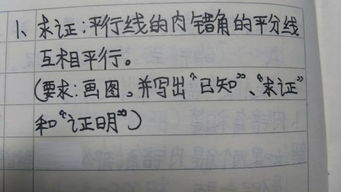 1、求证:平行线的内错角的平分线
互相平行。
(要求:画图,并写出“已知”、“求证”
和“证明”)